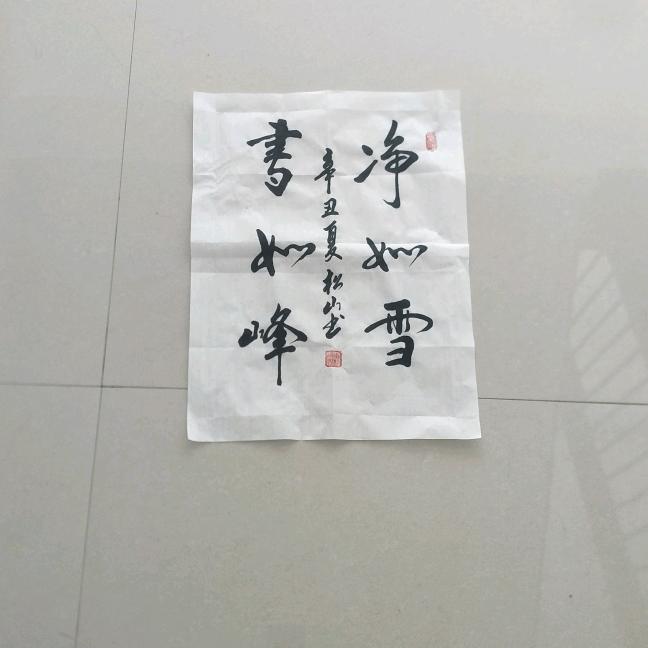 净如雪
書如峰
辛丑夏松山书